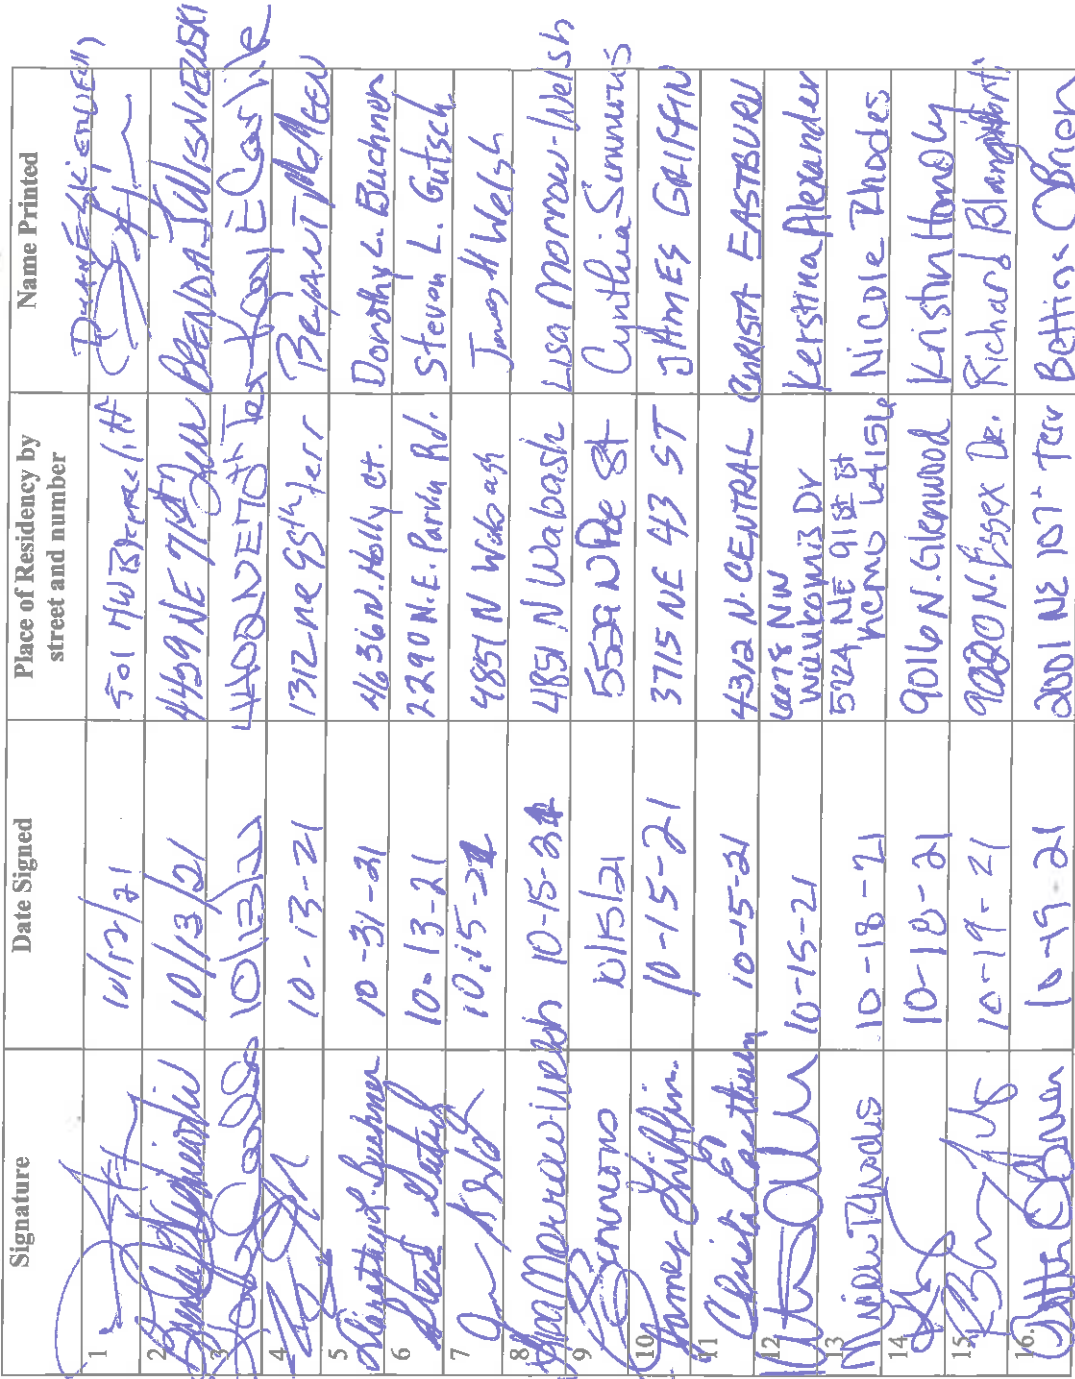 Signature Date Signed Place of Residency by street and number Name Printed
1 10/12/21 501 NW
2 10/13/21 4459 NE 71st Terr BRENDA J WISNIEWSKI
3 10/13/21 4402 NE 70th Ter
4 10-13-21 1312 ne 95th terr BRYANT McMEEN
5 Dorothy L. Buchner 10-31-21 4636 N. Holly Ct. Dorothy L. Buchner
6 10-13-21 2290 N.E. Parvin Rd. Steven L. Gutsch
7 10-15-21 4851 N Wabash James H Welsh
8 Lisa Morrow-Welsh 10-15-21 4851 N Wabash Lisa Morrow-Welsh
9 10/15/21 5529 N Poe St Cynthia Simmons
10 James Griffin 10-15-21 3715 NE 43 ST JAMES GRIFFIN
11 Christa Eastburn 10-15-21 4312 N. CENTRAL CHRISTA EASTBURN
12 10-15-21 NW Waukomis Dr Kerstina Alexander
13 Nicole Rhodes 10-18-21 5724 NE 91st St KCMO 64156 Nicole Rhodes
14 10-18-21 9016 N. Glenwood Kristin
15 10-19-21 N. Essex Dr. Richard
16. 10-19-21 2001 NE 107th Terr Bettina OBrien